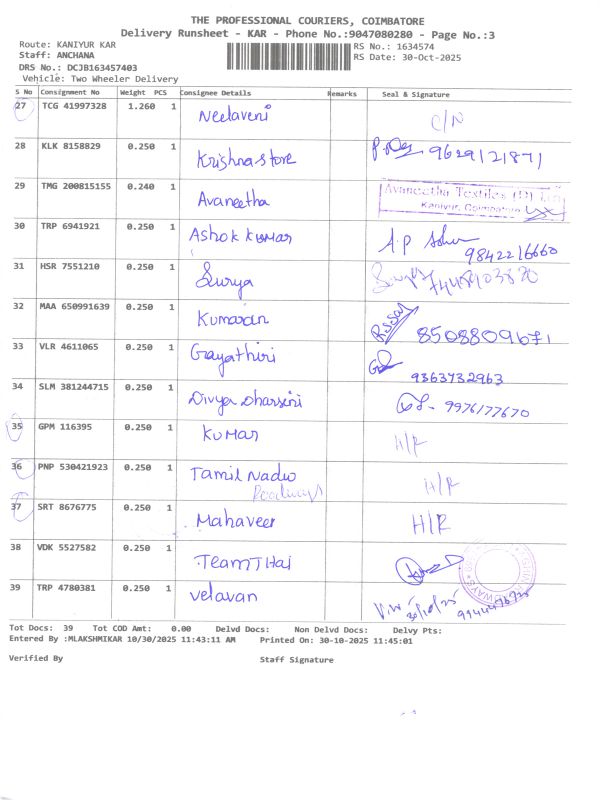 THE PROFESSIONAL COURIERS, COIMBATORE
Delivery Runsheet - KAR - Phone No.:9047080280 - Page No.:3
Route: KANIYUR KAR RS No.: 1634574
Staff: ANCHANA RS Date: 30-Oct-2025
DRS No.: DCJB163457403
Vehicle: Two Wheeler Delivery
S No Consignment No Weight PCS Consignee Details Remarks Seal & Signature
27 TCG 41997328 1.260 1 Neelaveni C/N
28 KLK 8158829 0.250 1 Krishna store 9629121871
29 TMG 200815155 0.240 1 Avaneetha Avaneetha Textiles (P) Ltd
Kaniyur, Coimbatore
30 TRP 6941921 0.250 1 Ashok kumar A.P 9842216660
31 HSR 7551210 0.250 1 Surya Surya
32 MAA 650991639 0.250 1 Kumaran 8508809671
33 VLR 4611065 0.250 1 Gayathiri 9363732963
34 SLM 381244715 0.250 1 Divya Dharsini 9976177670
35 GPM 116395 0.250 1 Kumar H/R
36 PNP 530421923 0.250 1 Tamil Nadu H/R
Roadways
37 SRT 8676775 0.250 1 Mahaveer H/R
38 VDK 5527582 0.250 1 TeamTHai
39 TRP 4780381 0.250 1 velavan V.W 30/10/25
Tot Docs: 39 Tot COD Amt: 0.00 Delvd Docs: Non Delvd Docs: Delvy Pts:
Entered By :MLAKSHMIKAR 10/30/2025 11:43:11 AM Printed On: 30-10-2025 11:45:01
Verified By Staff Signature